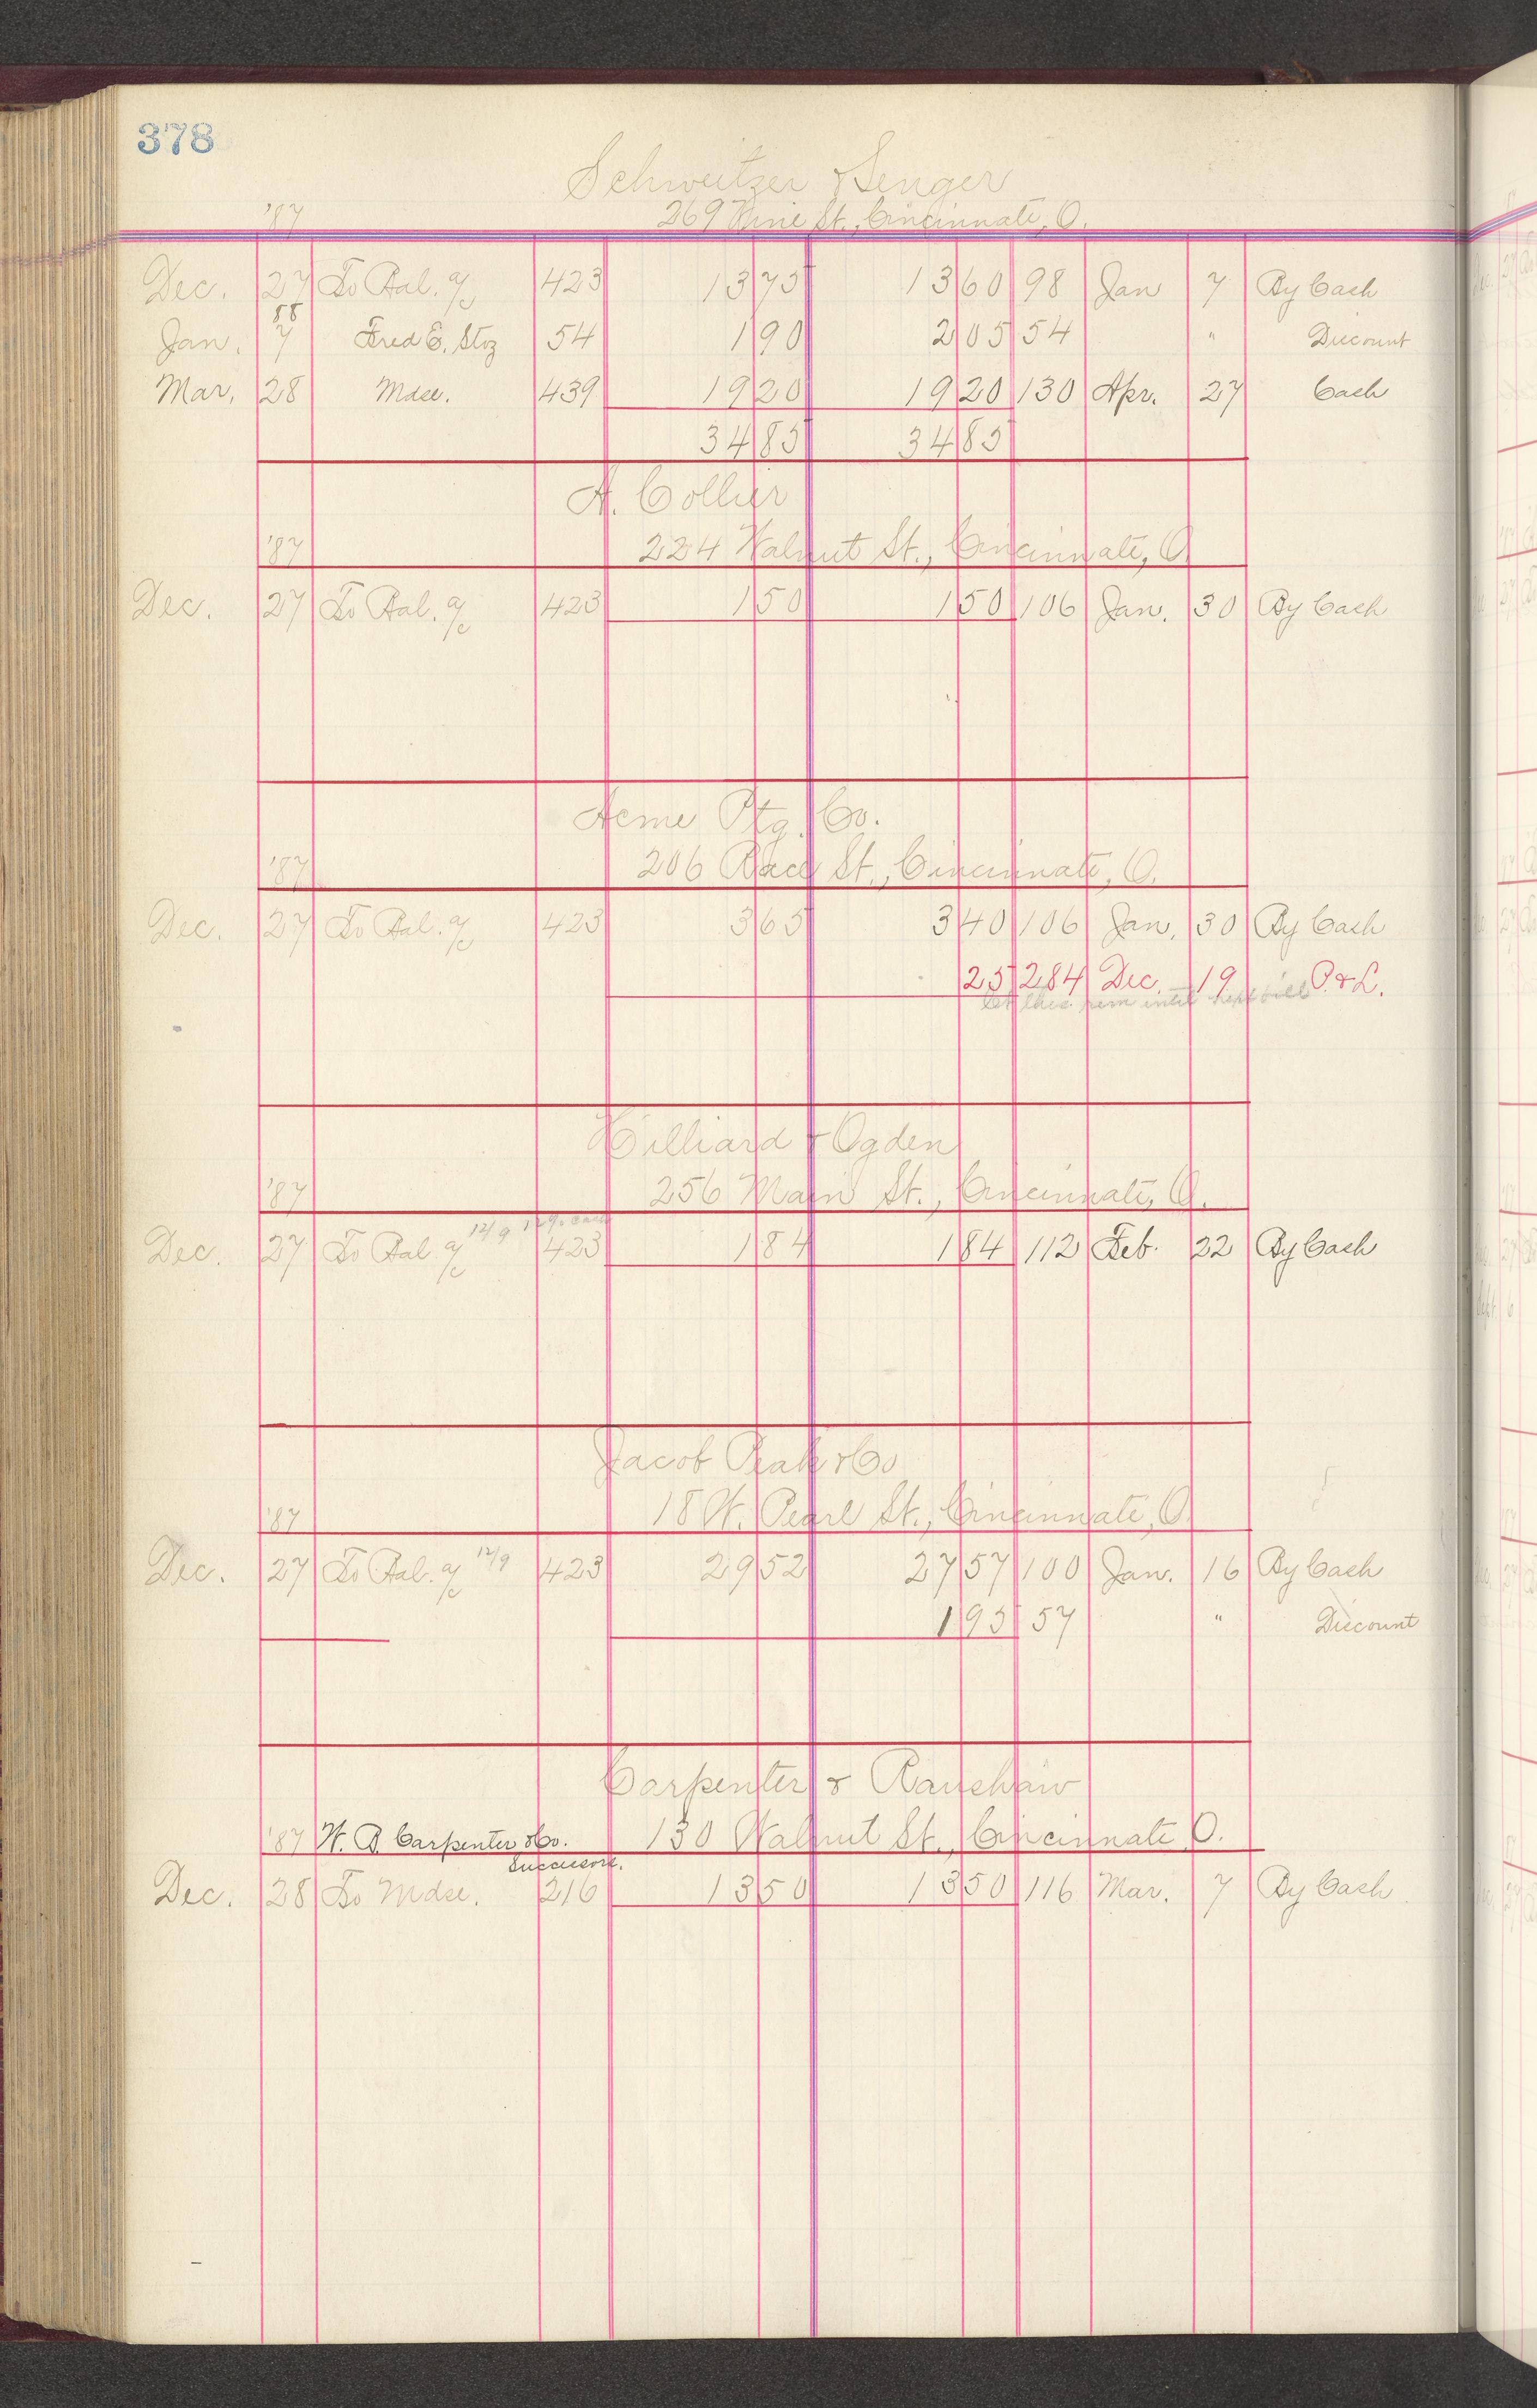 378
Schweitzer & Senger
'87 269 Vine St., Cincinnati, O.
Dec. 27 To Bal. a/c 423 13 75 13 60 98 Jan 7 By Cash
88
Jan. 7 Fred E. 54 1 90 2 05 54 " Discount
Mar. 28 Mdse. 439 19 20 19 20 130 Apr. 27 Cash
34 85 34 85
A. Collier
'87 224 Walnut St., Cincinnati, O.
Dec. 27 To Bal. a/c 423 1 50 1 50 106 Jan. 30 By Cash
Acme Ptg. Co.
'87 206 Race St., Cincinnati, O.
Dec. 27 To Bal. a/c 423 3 65 3 40 106 Jan. 30 By Cash
25 284 Dec. 19 P. & L.
Let this rem until next bill
Hilliard & Ogden
'87 256 Main St., Cincinnati, O.
12/9
Dec. 27 To Bal. a/c 423 1 84 1 84 112 Feb. 22 By Cash
Jacob Peak & Co
'87 18 W. Pearl St., Cincinnati, O.
Dec. 27 To Bal. a/c 12/9 423 29 52 27 57 100 Jan. 16 By Cash
1 95 57 " Discount
Carpenter & Ranshaw
'87 W. B. Carpenter & Co. 130 Walnut St., Cincinnati O.
Successors.
Dec. 28 To Mdse. 216 13 50 13 50 116 Mar. 7 By Cash